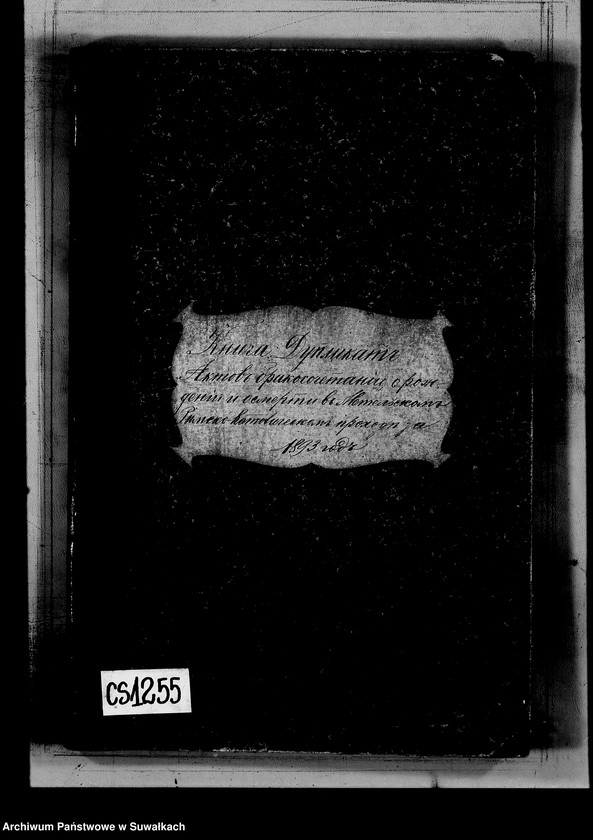 Книга Дупликатъ
Актовъ бракосочетанія о рож-
деніи и о смерти въ Метелскомъ
Римско-Католическомъ приходѣ за
1893 годъ
CS1255
Archiwum Państwowe w Suwałkach